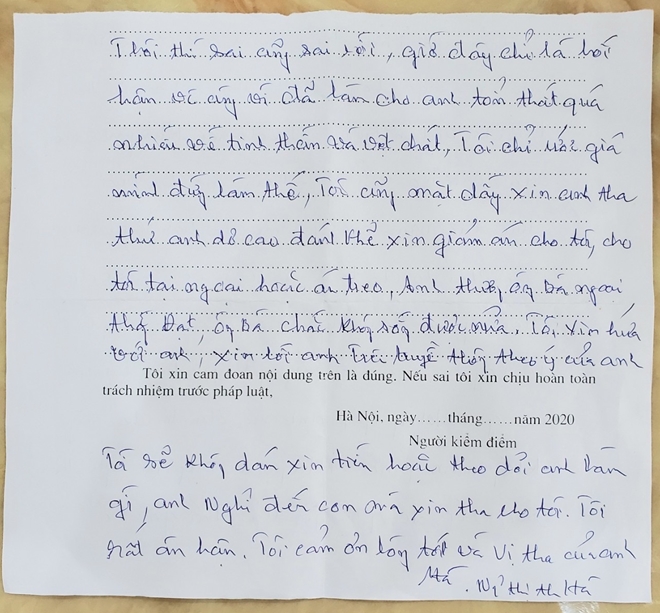 Thôi thì sai cũng sai rồi, giờ đây chỉ là hối
hận vì đã làm cho anh tổn thất quá
nhiều về tinh thần và vật chất, Tôi chỉ ước giá
mình đừng làm thế, Tôi cũng mặt dầy xin anh tha
thứ anh dơ cao đánh khẽ xin giảm án cho tôi, cho
tôi tại ngoại hoặc án treo, Anh thương ông bà ngoại
Đạt, ông Bà chắc không sống được nữa, Tôi xin hứa
với anh, xin lỗi anh trên truyền thông theo ý của anh
Tôi xin cam đoan nội dung trên là đúng. Nếu sai tôi xin chịu hoàn toàn
trách nhiệm trước pháp luật,
Hà Nội, ngày......tháng......năm 2020
Người kiểm điểm
Tôi sẽ không dám xin tiền hoặc theo dõi anh làm
gì, anh Nghĩ đến con mà xin tha cho tôi. Tôi
rất ân hận. Tôi cảm ơn lòng tốt và Vị tha của anh
Hà